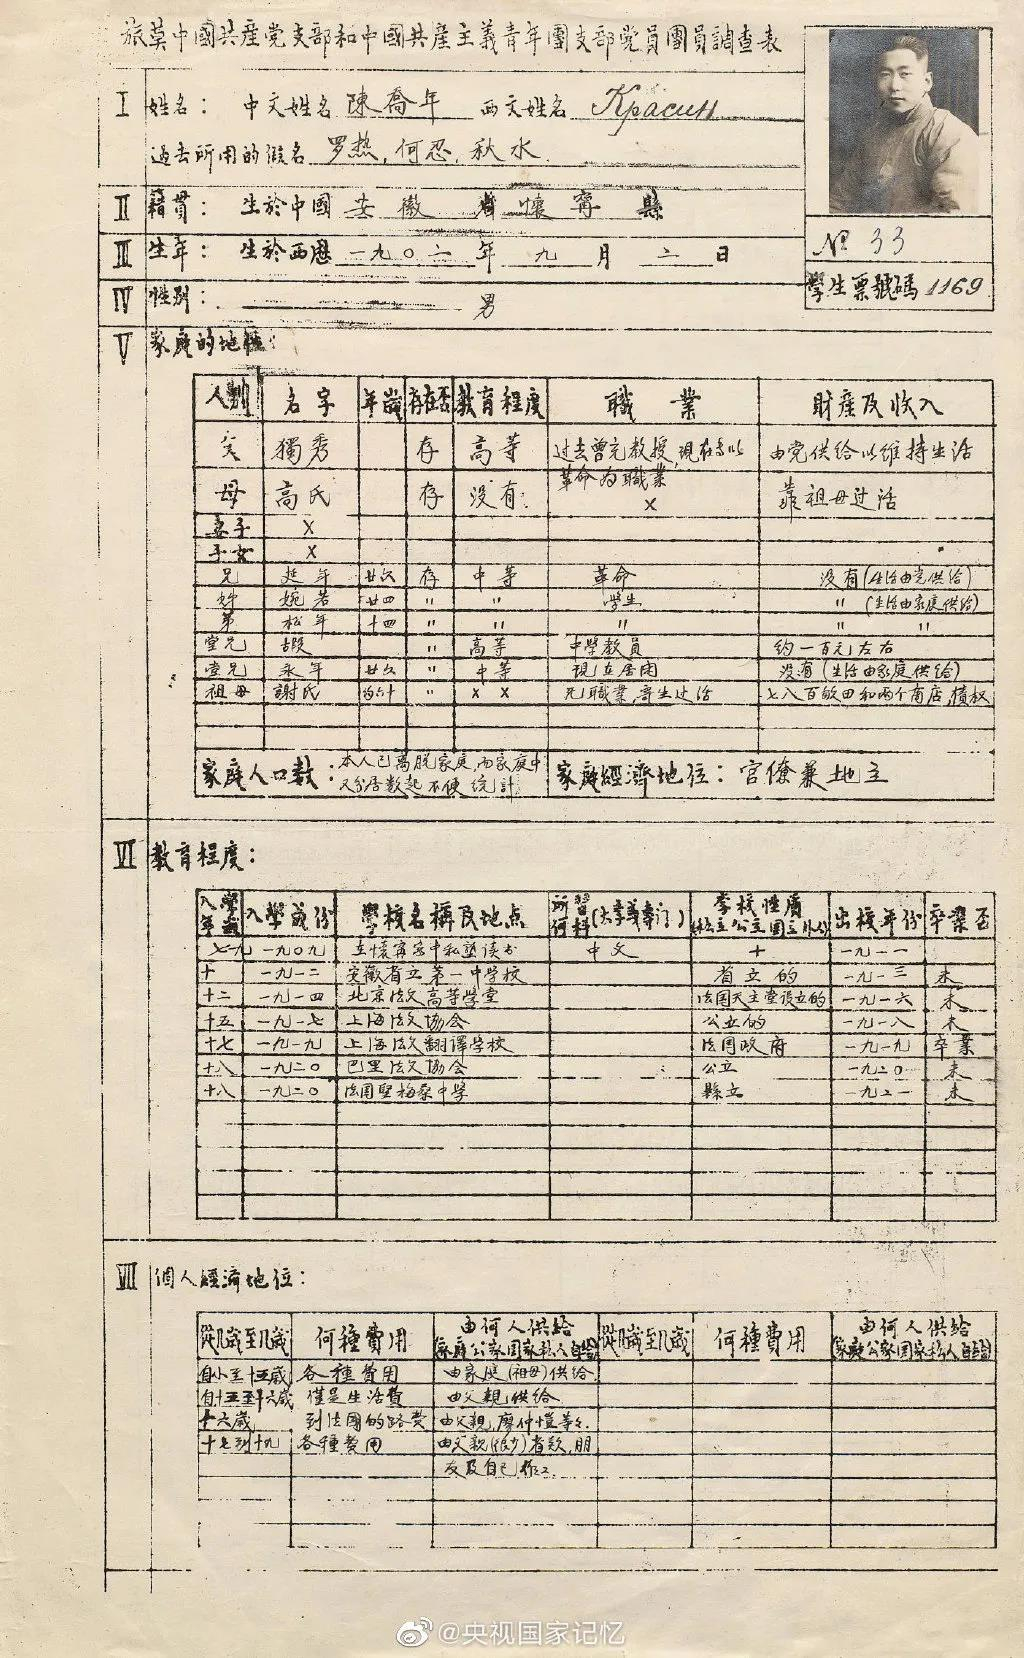 旅莫中國共產党支部和中國共產主義青年團支部党員團員調查表
I 姓名: 中文姓名 陳喬年 西文姓名 Красин
過去所用的假名 罗热,何忍,秋水.
II 籍貫: 生於中國 安徽 省 懷寧 縣
III 生年: 生於西歷 一九〇二 年 九 月 二 日
IV 性别: 男
№ 33
學生票號碼 1169
V 家庭的地位:
人别 名字 年歲 存在否 教育程度 職業 財產及收入
父 獨秀 存 高等 过去曾充教授,現在 以革命为職業 由党供给以維持生活
母 高氏 存 没有 x 靠祖母过活
妻子 x
子女 x
兄 延年 廿六 存 中等 革命 没有(生活由党供给)
姊 婉若 廿四 〃 〃 学生 〃 (生活由家庭供给)
弟 松年 十四 〃 〃 〃 〃 〃
堂兄 遐 〃 高等 中學教員 约一百元左右
堂兄 永年 廿六 〃 中等 現在居闲 没有(生活由家庭供给)
祖母 謝氏 约六十 〃 x x 无職業,寄生过活 七八百畝田和两个商店,債权
家庭人口数: 本人已离脱家庭,而家庭中又分居数起不便统計 家庭經濟地位: 官僚兼地主
VI 教育程度:
入學年歲 入學歲份 學校名稱及地点 所習何科(大学或專门) 学校性质(私立公立国立外份) 出校年份 卒業否
七九 一九〇九 在懷寧家中私塾读书 中文 + 一九一一
十 一九一二 安徽省立第一中学校 省立的 一九一三 未
十二 一九一四 北京法文高等學堂 法国天主堂设立的 一九一六 未
十五 一九一七 上海法文協会 公立的 一九一八 未
十七 一九一九 上海法文翻譯学校 法国政府 一九一九 卒業
十八 一九二〇 巴里法文協会 公立 一九二〇 未
十八 一九二〇 法国聖梅桑中学 縣立 一九二一 未
VII 個人經濟地位:
從几歲至几歲 何種費用 由何人供给(家庭公家国家私人自给) 從几歲至几歲 何種費用 由何人供给(家庭公家国家私人自给)
自小至十五歲 各種費用 由家庭(祖母)供给
自十五至十六歲 僅是生活費 由父親供给
十六歲 到法國的路费 由父親,廖仲愷等
十七到十九 各種費用 由父親(很少)者欵,朋友及自己作工
@央视国家记忆